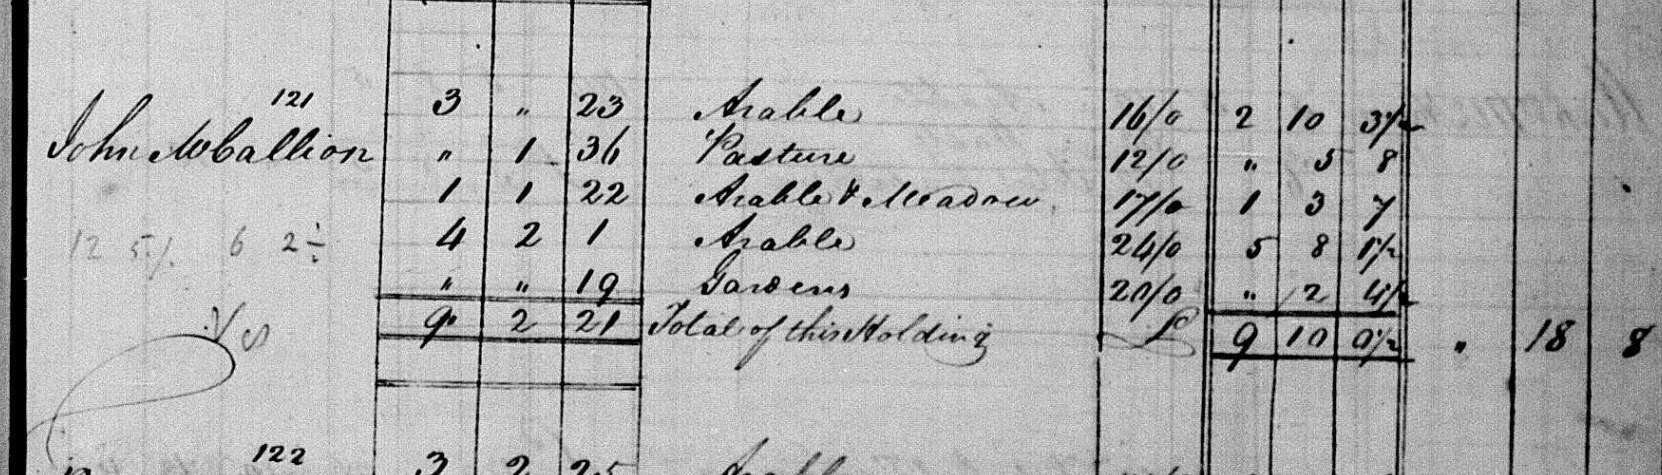 121 3 " 23 Arable 16/0 2 10 3½
John McCallion " 1 36 Pasture 12/0 " 5 8
1 1 22 Arable & Meadow 17/0 1 3 7
12 5/. 6 2 ÷ 4 2 1 Arable 24/0 5 8 1½
" " 19 Gardens 20/0 " 2 4½
9 2 21 Total of this Holding £ 9 10 0½ " 18 8
122 3 2 25 Arable